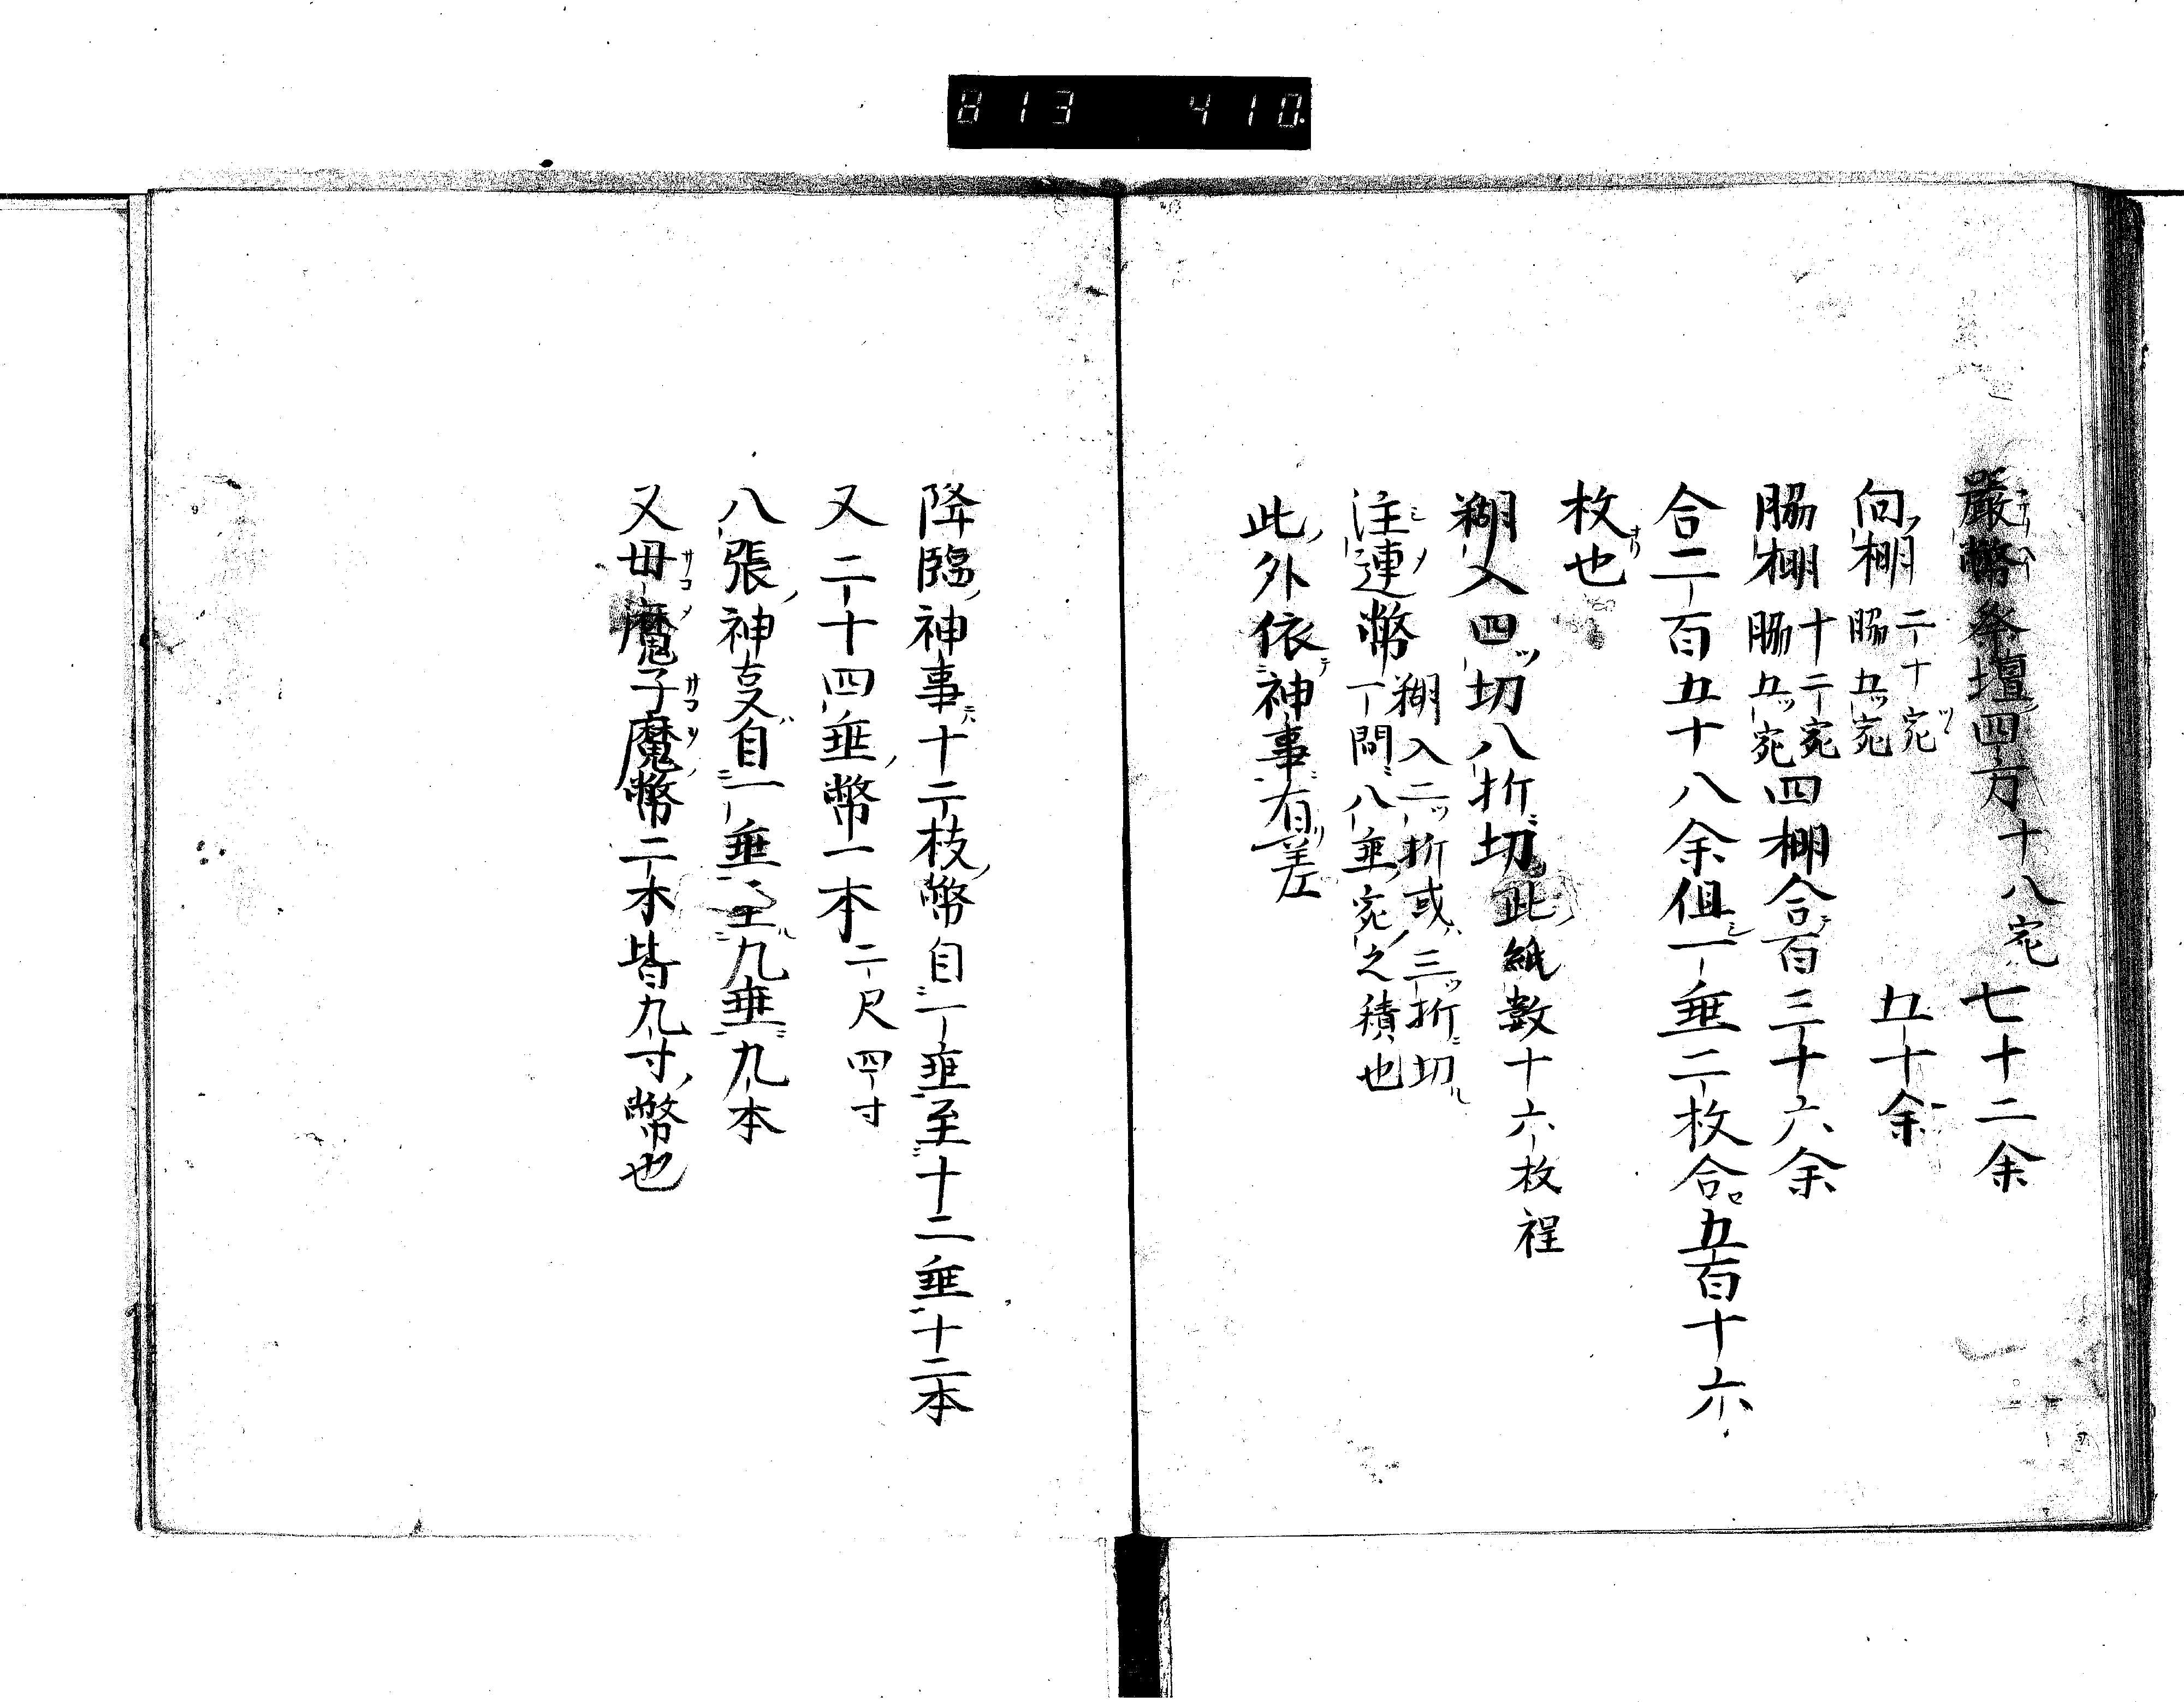 813 410.
嚴幣祭壇四方十八宛 七十二余
向棚 二十宛 脇五ッ宛 五十余
脇棚 十二宛 脇五ッ宛 四棚合百三十六余
合二百五十八余但一垂二枚合五百十六
枚也
糊入四ッ切八折切此紙数十六枚程
注連幣 糊入二ッ折或三ッ折切 一間八垂宛之積也
此外依神事有差
降臨神事十二枝幣自一垂至十二垂十二本
又二十四垂幣一本 二尺四寸
八張神㕝自一垂至九垂九本
又毌魔子魔幣二本皆九寸幣也